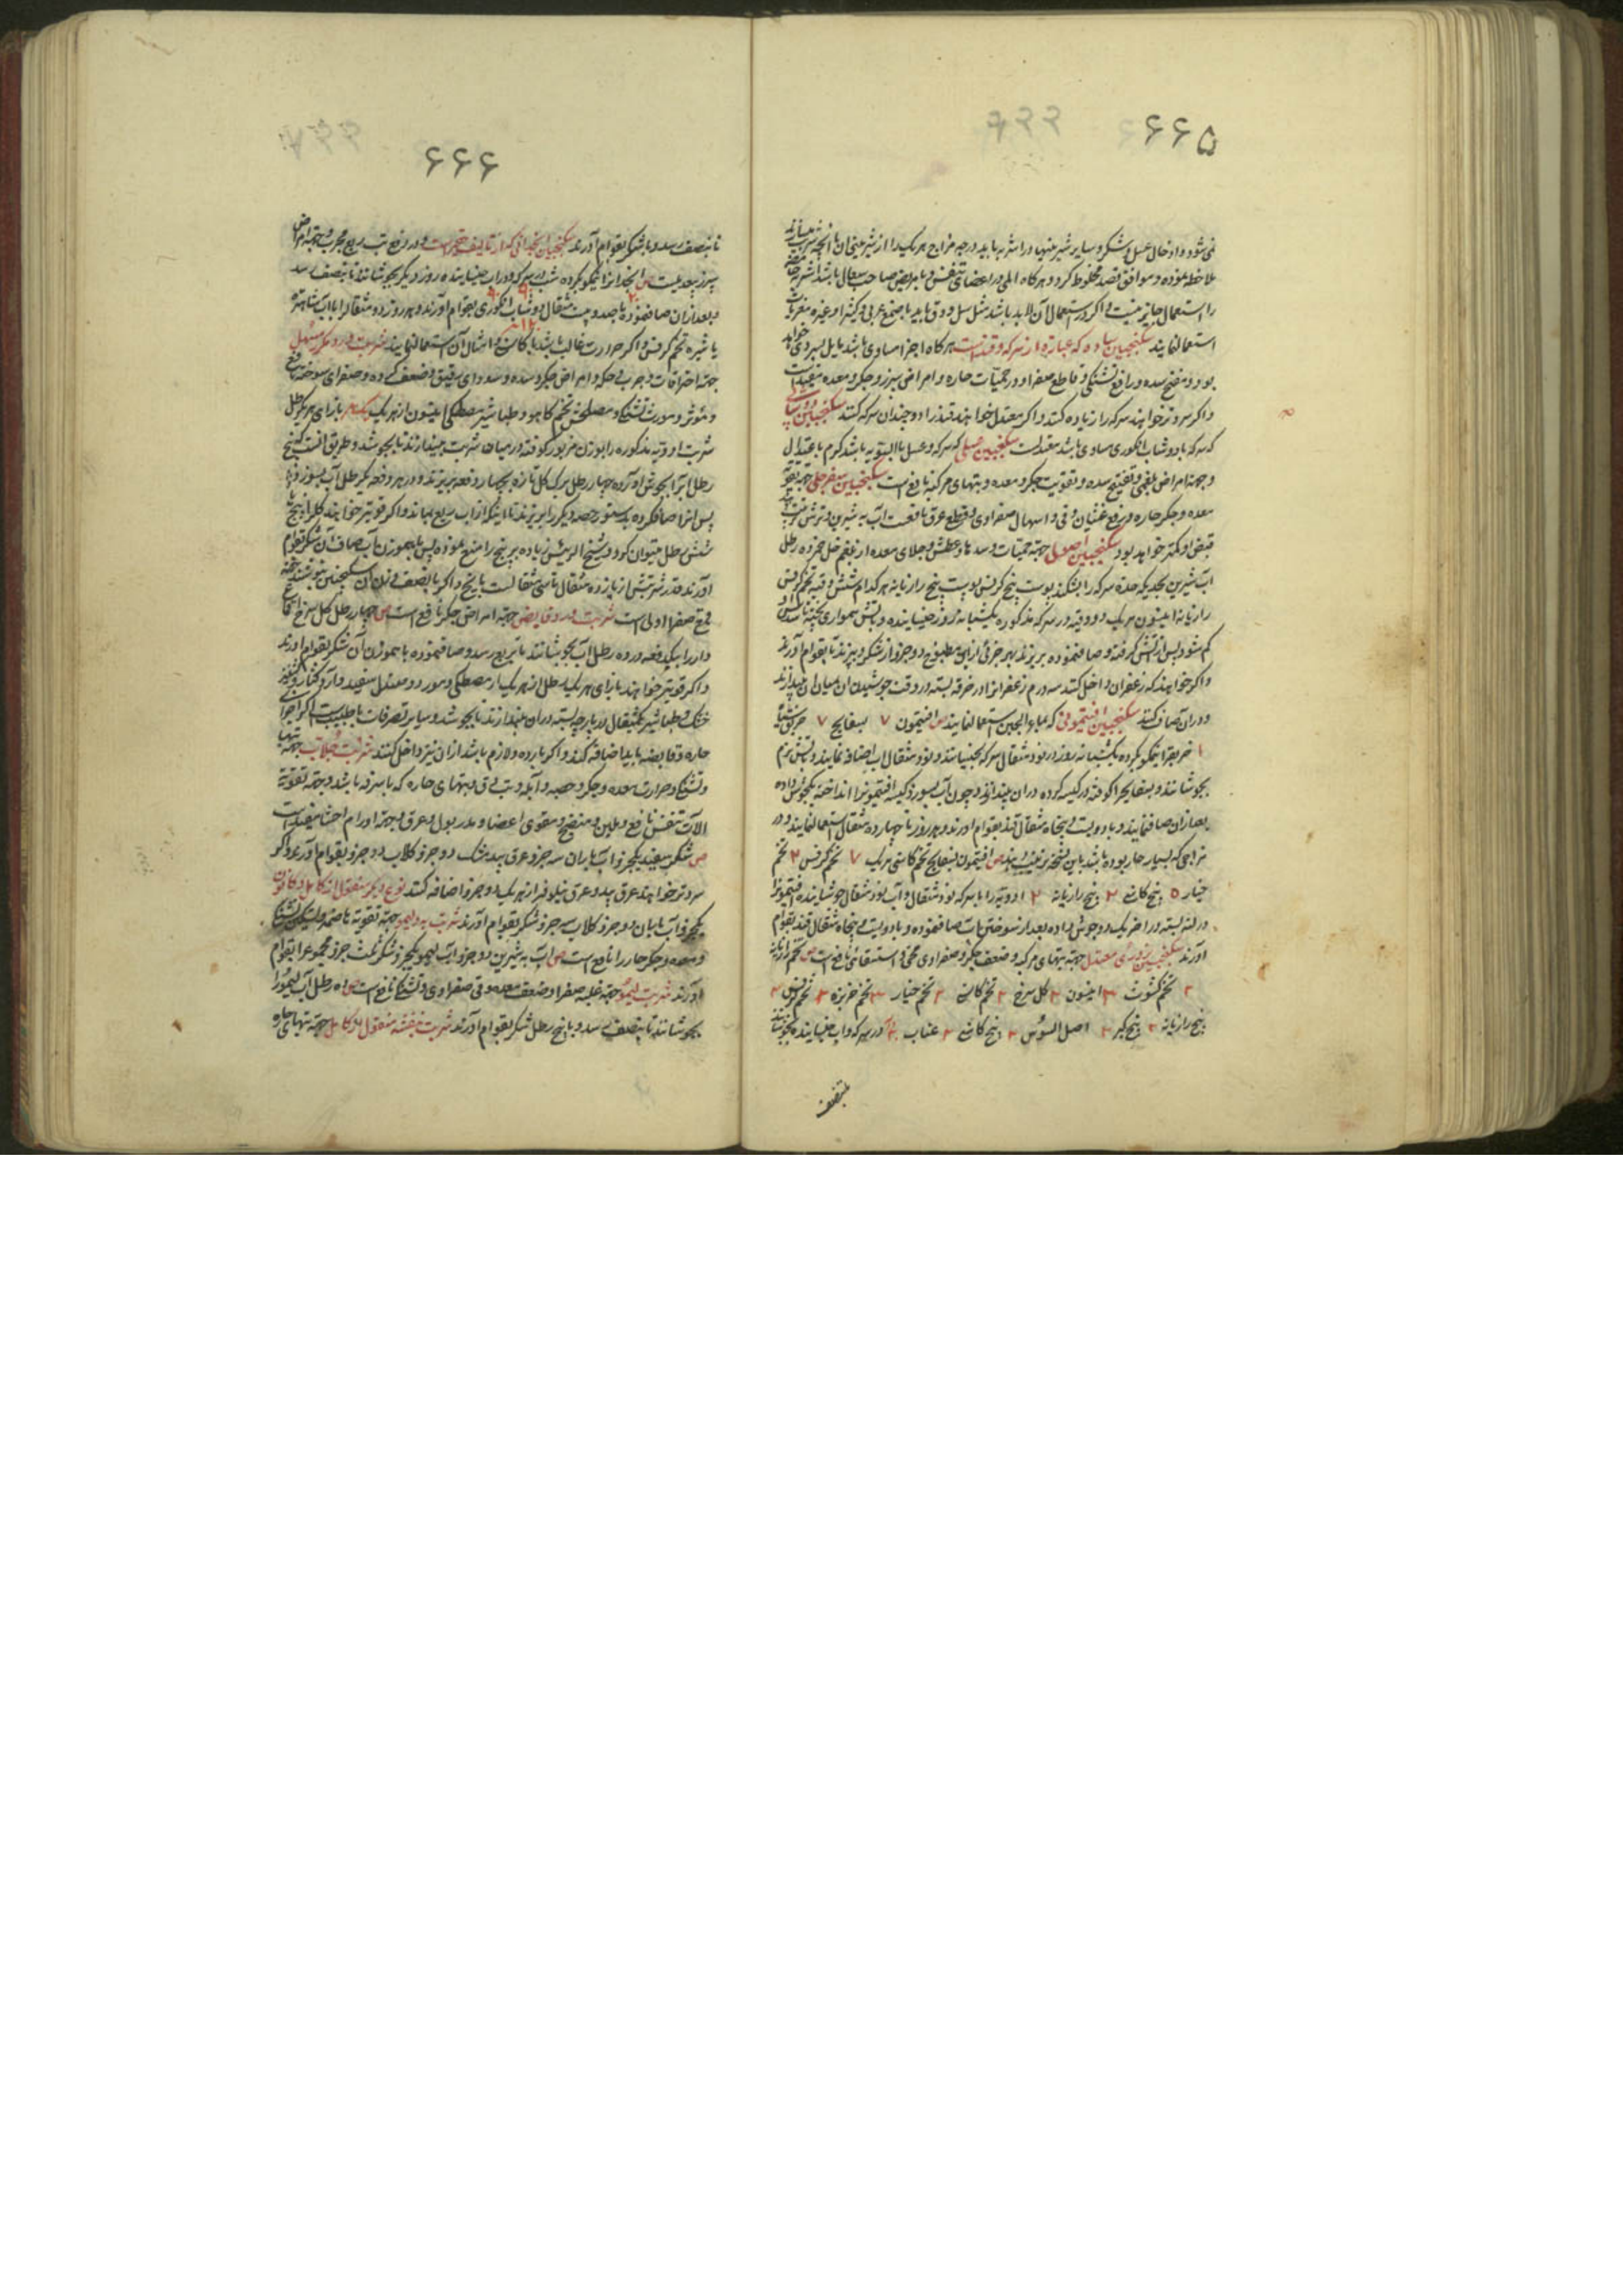 ۶۶۵
نمی‌شود و ادخال عسل و شکر و سایر شیرینیها در اشربه باید درجه مزاج هر یک را از شیرینی ان با انچه شربت میسازند
ملاحظه نموده و موافق قصد مخلوط کرد و هرگاه المی در اعضای تنفس و یا مریض صاحب سعال باشد اشربه حامضه
را استعمال جایز نیست و اگر در استعمال آن لابد باشد مثل سل و دق باید با صمغ عربی و کثیرا و غیره مغریات
استعمال نمایند سکنجبین ساده که عبارة از سرکه و قند است هرگاه اجزا مساوی باشد مایل بسردی خواهد
بود و مفتح سده و رافع تشنگی و قاطع صفرا و در حمیات حاره و امراض سپرز و جگر و معده مفید است
و اگر سردتر خواهند سرکه را زیاده کنند و اگر معتدل خواهند قند را دو چندان سرکه کنند سکنجبین دوشابی
که سرکه با دوشاب انگوری مساوی باشد معتدلست سکنجبین عسلی که سرکه و عسل بالسویه باشد گرم باعتدال
و جهة امراض بلغمی و تفتیح سده و تقویت جگر و معده و تبهای مرکبه نافع است سکنجبین سفرجلی جهة تقویة
معده و جگر حاره و رفع غثیان و قی و اسهال صفراوی و قطع عرق نافعست آب به شیرین و ترش
قبض او کمتر خواهد بود سکنجبین اصولی جهة حمیات و سدها و عطش و جلای معده از بلغم خل خمر ده رطل
آب شیرین بیخ کرفس پوست بیخ رازیانه هر کدام شش وقیه تخم کرفس
رازیانه انیسون هر یک دو وقیه در سرکه مذکوره یکشبانه روز خیسانیده و باتش همواری
کم شود پس از آتش گرفته و صاف نموده بریزند بهر جزئی ازین مطبوخ دو جزو از شکر و بپزند تا بقوام آورند
و اگر خواهند که زعفران داخل کنند سه درم زعفرانرا در خرقه بسته در وقت جوشیدن ان میان ان بیندازند
و دران صاف کنند سکنجبین افتیمونی که بماء الجبن استعمال نمایند ص افتیمون ۷ بسفایج ۷ خربق سیاه
۱ خربقرا نیمکوب کرده یکشبانه روز در نود مثقال سرکه بخیسانند و نود مثقال اب اضافه نمایند و باتش نرم
بجوشانند و بسفایجرا کوفته در کیسه کرده دران بیندازند و چون آب بسوزد کیسه افتیمونرا انداخته یکجوش داده
بعد ازان صاف نمایند و با دویست و پنجاه مثقال قند بقوام اورند و هر روز تا چهارده مثقال استعمال نمایند و در
مزاجی که بسیار حار بوده باشد باین نسخه ص افتیمون بسفایج تخم کاسنی هر یک ۷ تخم کرفس ۲ تخم
خیار ۵ بیخ کاسنی ۲ بیخ رازیانه ۲ ادویه را با سرکه نود مثقال و آب نود مثقال جوشانیده افتیمونرا
در لته بسته در اخر یک دو جوش داده بعد از سوختن آب صاف نموده و با دویست و پنجاه مثقال قند بقوام
آورند سکنجبین بزوری معتدل جهة تبهای مرکبه و ضعف جگر و صفراوی مخی و استسقای نافع است ص تخم رازیانه
۲ تخم کشوث ۳ انیسون ۳ گل سرخ ۲ تخم کاسنی ۲ تخم خیار ۳ تخم خربزه ۳ تخم کرفس ۲
بیخ رازیانه ۲ بیخ کبر ۲ اصل السوس ۲ بیخ کاسنی ۲ عناب در سرکه و اب خیسانیده بجوشانند
بتنصف
۶۶۶
تا بنصف رسد و با شکر بقوام آورند سکنجبین انجدانی که از تالیف حقیر است و در رفع تب ربع مجرب و جهة امراض
سپرز بیعدیلست ص انجدانرا نیمکوب کرده شب در سرکه و در اب خیسانیده روز دیگر بجوشانند تا بنصف رسد
و بعد ازان صاف نموده با صد و بیست مثقال دوشاب انگوری بقوام آورند و هر روز ده مثقالرا با اب شاهتره
یا شیره تخم کرفس و اگر حرارت غالب باشد با کاسنی و امثال آن استعمال نمایند شربت ورد مکرر مسهل
جهة احتراقات و جرب و حکه و امراض جگر و سده و سودای رقیق و ضعف کرده و صفرای سوخته نافع
و مؤثر و مورث تشنگی و مصلحش تخم کاهو و طباشیر مصطکی انیسون از هر یک بازای هر یکرطل
شربت ادویه مذکوره را بوزن مزبور کوفته در میان شربت بیندازند تا بجوشد و طریق انست که پنج
رطل آبرا بجوش آورده چهار رطل برک گل تازه بچهار دفعه بریزند و در هر دفعه یکرطل آب بسوزد و
پس انرا صاف کرده بدستور حصه دیگر را بریزند تا اینکه از اب ربع بماند و اگر قویتر خواهند گلرا پنج
شش رطل میتوان کرد و شیخ الرئیس زیاده بر پنج را منع نموده پس با همموزن آب صاف آن شکر بقوام
آورند قدر شربتش از پانزده مثقال تا سی مثقالست با یخ و اگر با نصف وزن آن سکنجبین بنوشند جهة
قمع صفرا اولی است شربت ورد قابض جهة امراض جگر نافع است ص چهار رطل گل سرخ
دارد را بیکدفعه در ده رطل آب بجوشانند تا بربع رسد و صاف نموده با هموزن آن شکر بقوام اورند
و اگر قویتر خواهند بازای هر یک رطل از هر یک از مصطکی و مورد و صندل سفید و
خشک و طباشیر یکمثقال در پارچه بسته دران بیندازند تا بجوشد و سایر تصرفات با طبیب است اگر اجزای
حاره و قابضه باید اضافه کند و اگر بارده و لازم باشد ازان نیز داخل کنند شربت جلاب جهة تبها
و تشنگی و حرارت معده و جگر و حصبه و آبله و تب دق و تبهای حاره که با سرفه باشد و جهة تقویة
آلات تنفس نافع و ملین و منضج و مقوی اعضا و مدر بول و عرق و جهة اورام احشا مفید است
ص شکر سفید یکجزو آب باران سه جزو عرق بیدمشک دو جزو کلاب دو جزو بقوام آورند و اگر
سردتر خواهند عرق بید و عرق نیلوفر از هر یک دو جزو اضافه کنند نوع دیگر منقول از کامل و قانون
یکجزو آب باران دو جزو کلاب سه جزو شکر بقوام آورند شربت به و لیمو جهة تقویة هاضمه و تسکین تشنگی
و معده و جگر حار را نافع است ص آب به شیرین دو جزو اب لیمو یکجزو شکر ثلث جزو مجموعرا بقوام
آورند شربت لیمو جهة غلبه صفرا و ضعف معده و قی صفراوی و تشنگی نافع است ص ده رطل آب لیمو را
بجوشانند تا بنصف رسد و با پنج رطل شکر بقوام آورند شربت بنفشه منقول از کامل جهة تبهای حاره